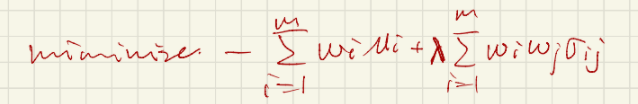 miminize. - \sum_{i=1}^{m} w_i μ_i + λ \sum_{i=1}^{m} w_i w_j σ_{ij}